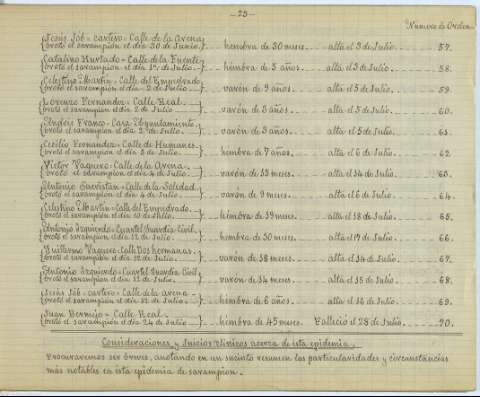 —25—
Número de Orden.
Jesús Job - cartero - Calle de la Arena
brotó el sarampión el día 30 de Junio. hembra de 30 meses. alta el 3 de Julio. 57.
Catalino Hurtado - Calle de la Fuente
brotó el sarampión el día 1º de Julio. hembra de 5 años. alta el 3 de Julio. 58.
Celestino Martín - Calle del Empedrado
brotó el sarampión el día 2 de Julio varón de 9 años. alta el 5 de Julio. 59.
Lorenzo Fernandez - Calle Real
brotó el sarampión el día 2 de Julio varón de 3 años. alta el 5 de Julio 60.
Franco - Casa Ayuntamiento
brotó el sarampión el día de Julio varón de 3 años. alta el 5 de Julio 61.
Cecilio Fernandez - Calle de Humanes
brotó el sarampión el día 3 de Julio hembra de 7 años. alta el 6 de Julio 62.
Victor Vaquero - Calle de la Arena
brotó el sarampión el día 4 de Julio varón de 33 meses. alta el 14 de Julio 63.
Antonio Sacristán - Calle de la Soledad
brotó el sarampión el día 4 de Julio varón de 9 meses. alta el 6 de Julio 64.
Celestino Martín - Calle del Empedrado
brotó el sarampión el día 10 de Julio hembra de 39 meses. alta el 18 de Julio 65.
Antonio Izquierdo - Cuartel Guardia Civil
brotó el sarampión el día 12 de Julio. hembra de 30 meses. alta el 17 de Julio. 66.
Guillermo Vaquero - Calle Dos hermanas
brotó el sarampión el día 12 de Julio. varón de 38 meses. alta el 14 de Julio. 67.
Antonio Izquierdo - Cuartel Guardia Civil
brotó el sarampión el día 12 de Julio. varón de 34 meses. alta el 15 de Julio 68.
Jesús Job - cartero - Calle de la arena
brotó el sarampión el día 12 de Julio hembra de 6 años. alta el 16 de Julio. 69.
Juan Bermejo - Calle Real
brotó el sarampión el día 24 de Julio hembra de 45 meses. Falleció el 28 de Julio. 70.
Consideraciones y Juicios clínicos acerca de esta epidemia.
Procuraremos ser breves, anotando en un sucinto resumen las particularidades y circunstancias
más notables en esta epidemia de sarampion.